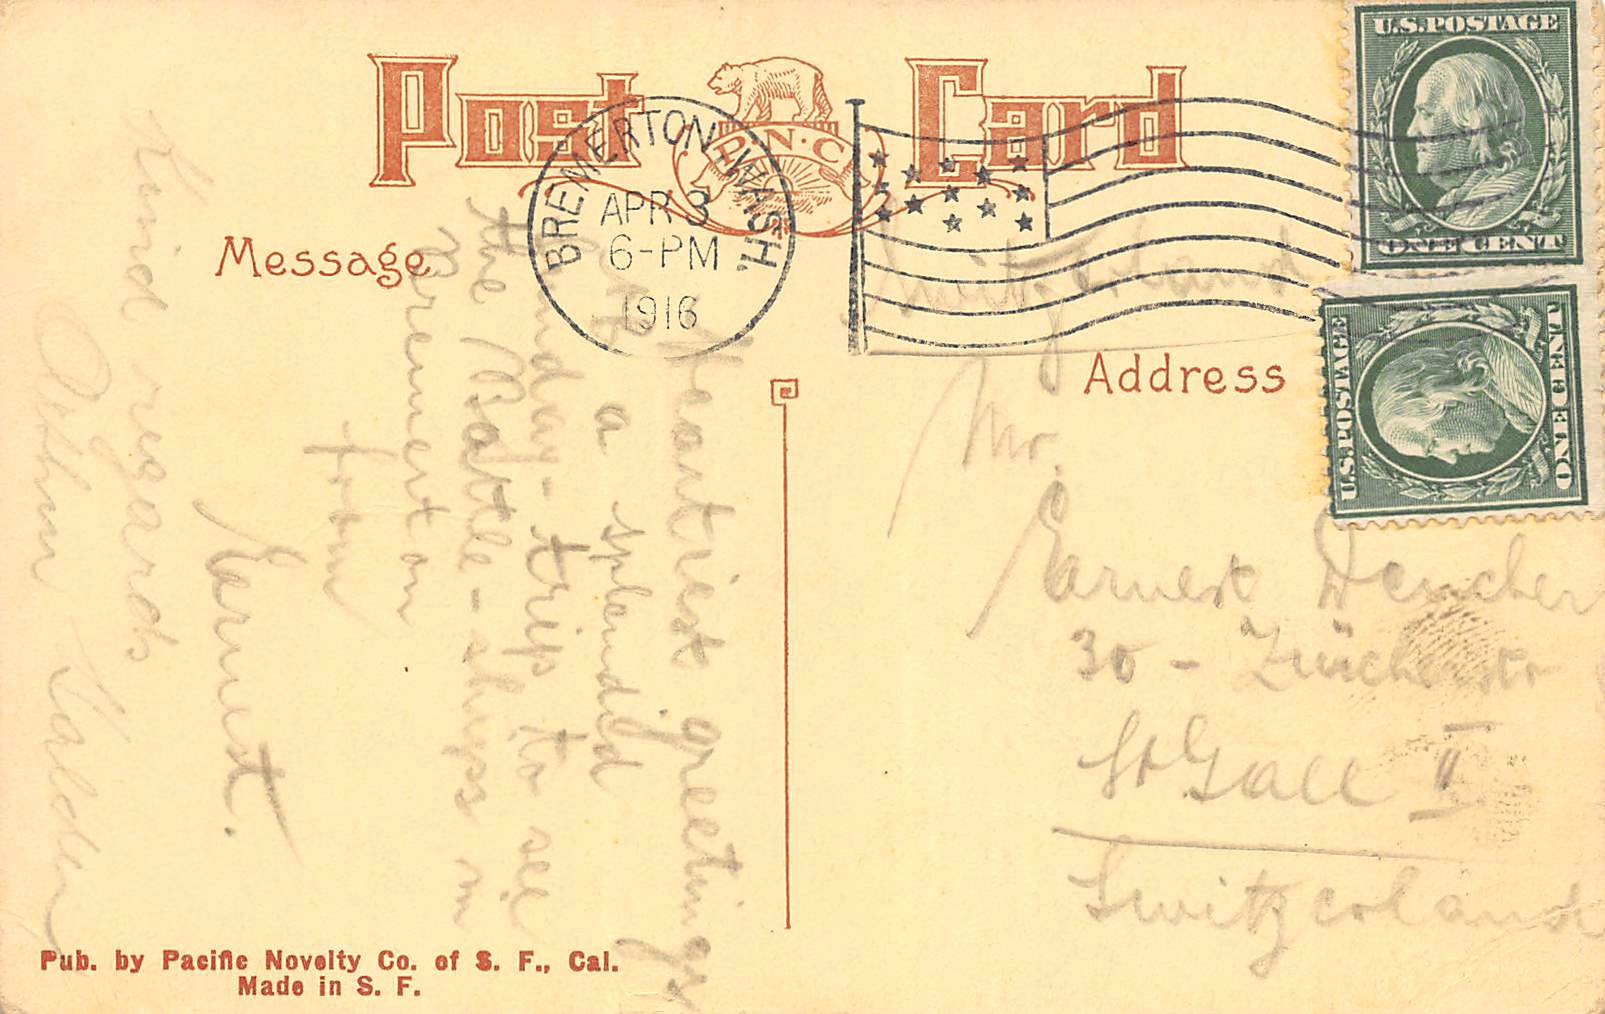 Post Card
P. N. C.
BREMERTON, WASH.
APR 3
6-PM
1916
U.S. POSTAGE
ONE CENT
U.S. POSTAGE
ONE CENT
Message
Heartiest greetings
a splendid
Sunday-trip to see
the Battle-ships in
Bremerton
from
Earnest.
Kind regards
Address
Switzerland
Mr.
Earnest
30 -
St Gall II
Switzerland
Pub. by Pacific Novelty Co. of S. F., Cal.
Made in S. F.